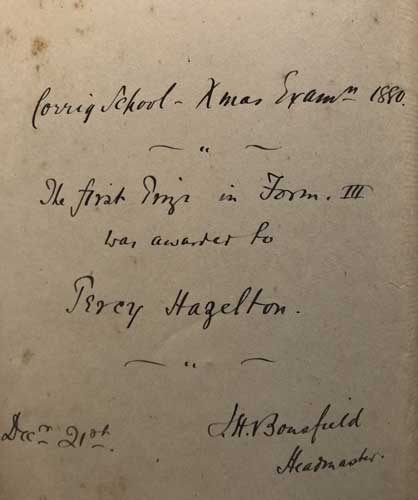 Corrig School - Xmas Examn 1880.
The first Prize in Form. III
was awarded to
Percy Hazelton.
Decr 21st.
J.H. Bousfield
Headmaster.